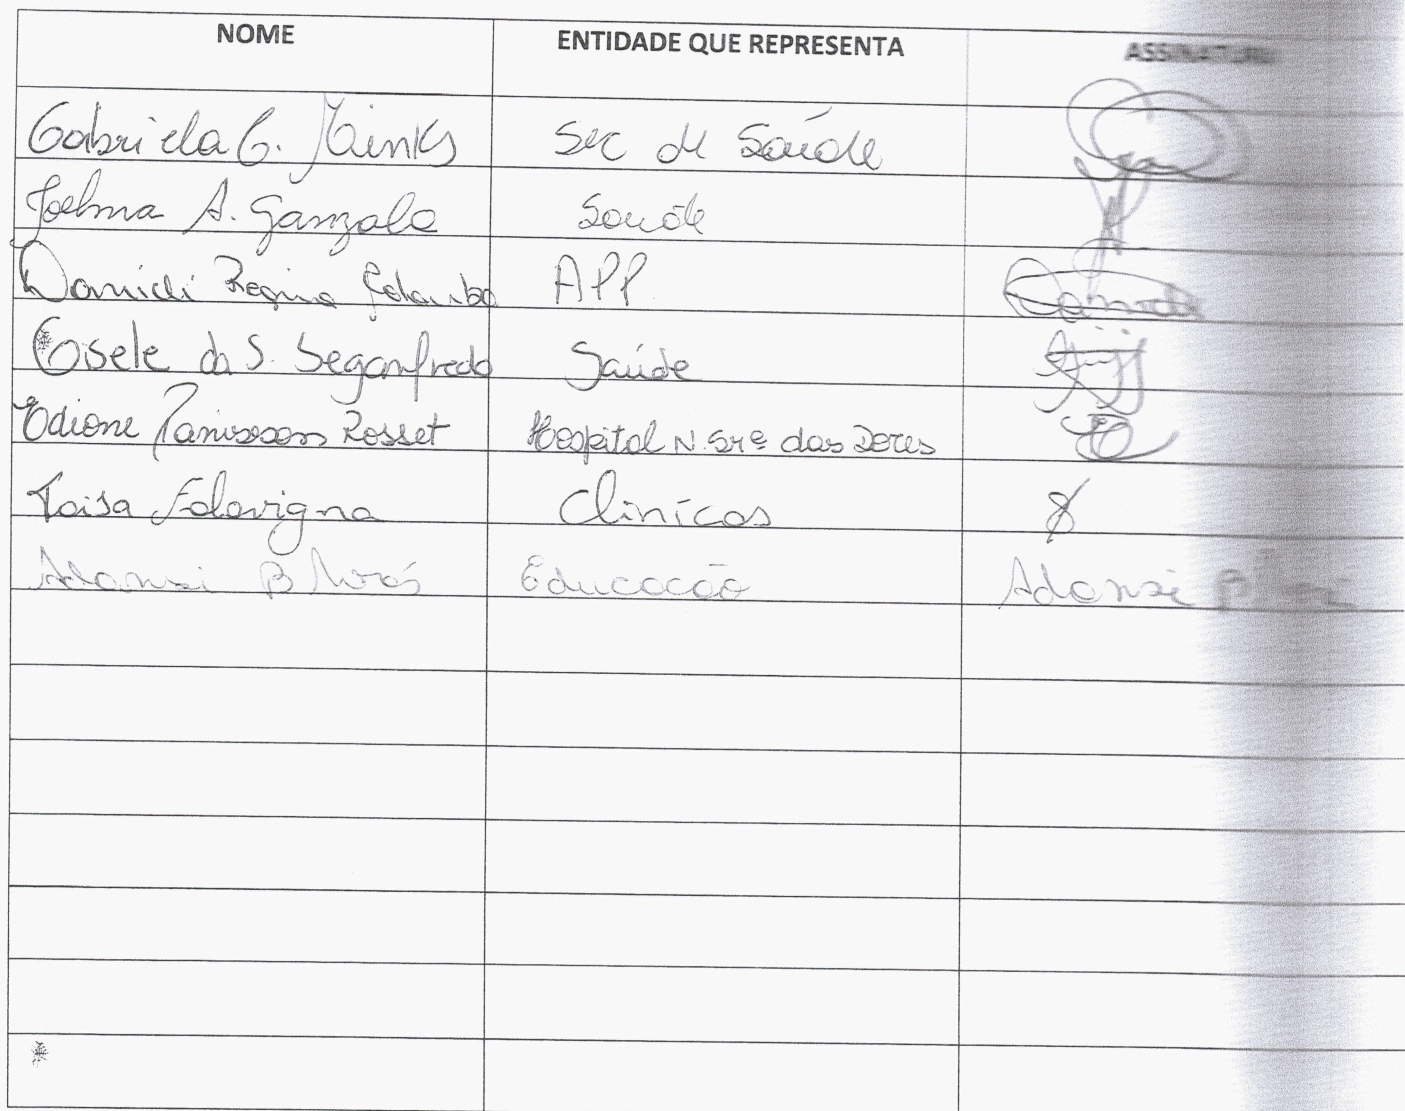 NOME ENTIDADE QUE REPRESENTA ASSINATURA
Gabriela G. Sec de Saúde
Joelma A. Ganzala Saúde
Danieli Regina Colombo APP
Gisele da S. Seganfredo Saúde
Edione Panisson Rosset Hospital N. Srª das Dores
Taisa Falavigna Clínicas
Adansi B Educação Adansi